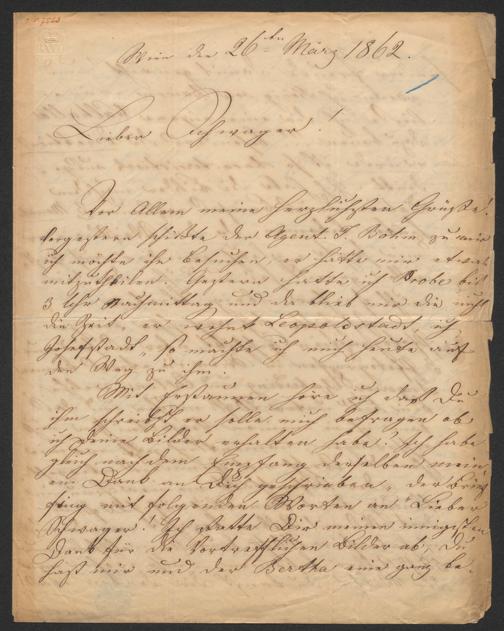 Wien den 26ten März 1862.
Lieber Schwager!
Vor Allem meine herzlichsten Grüße!
Vorgestern schikte der Agent J. Böhm zu mir
ich möchte ihn besuchen, er hätte mir etwas
mitzutheilen. Gestern hatte ich Probe bis
3 Uhr Nachmittag, und da blieb mir die nicht
die Zeit, er wohnt Leopoldstadt, ich
Josefstadt, so machte ich mich heute auf
den Weg zu ihm.
Mit Erstaunen höre ich daß Du
ihm schreibst er solle mich befragen ob
ich Deine Bilder erhalten habe! Ich habe
gleich nach dem Empfang derselben meinen
Dank an Dich geschrieben, der Brief
fing mit folgenden Worten an: Lieber
Schwager! Ich statte Dir meinen innigsten
Dank für die vortrefflichen Bilder ab, Du
hast mir und der Bertha eine ganz be-